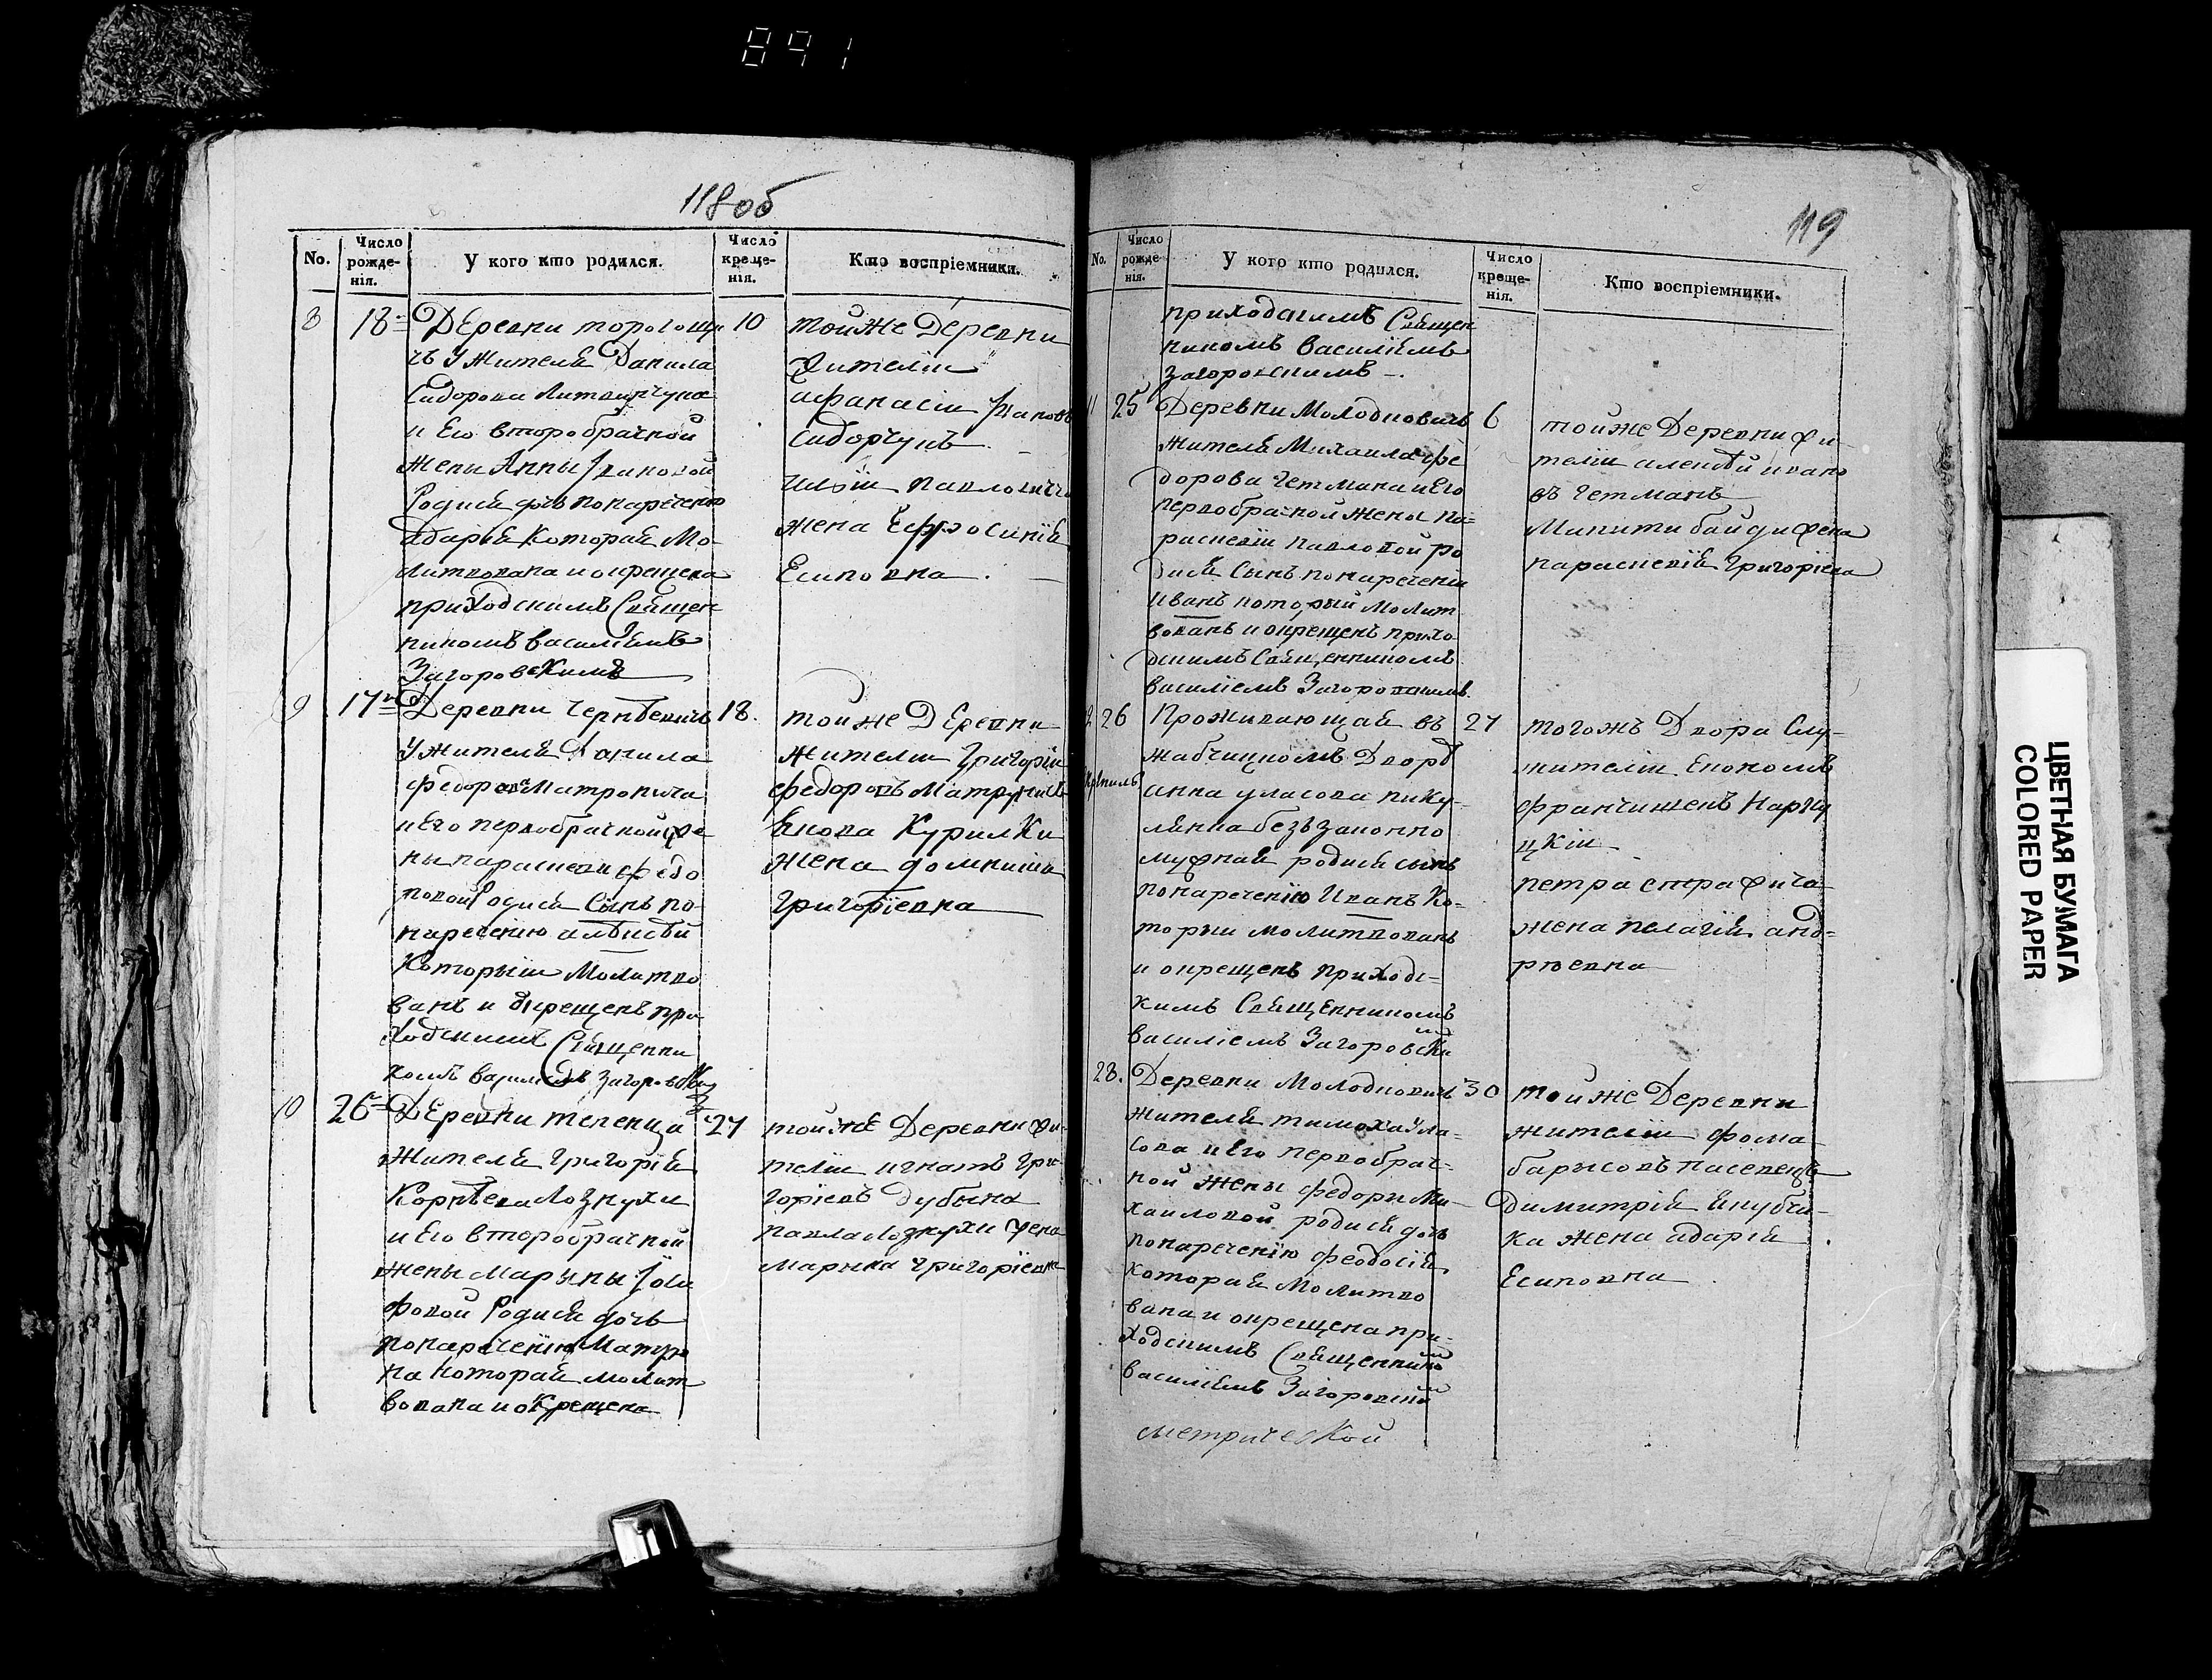 891
118об
No.
Число рожде-нія.
У кого кто родился.
Число креще-нія.
Кто воспріемники.
8 18 Деревни торогощи 10
чъ У Жителя Данила
Сидорова Литвинчука
и Его второбрачной
жены Анны Івановой
Родися дочь понаречению
Дарія Которая Мо-
литвована и окрещена
приходскимъ Священ
никомъ василіемъ
Загоровскимъ
тойже Деревни
жителіи
афанасіи Івановъ
Сидорчукъ
павловича
жена Ефросинія
Есиповна
9 17 Деревни Чернѣевичъ 18.
У жителя Данила
федорова Матронича
и Его первобрачной же
ны параскеви федо
товой Родися Сынъ по
наречению алѣксѣй
Которыи Молитво
ванъ и окрещенъ при
ходскимъ Священни
комъ василіемъ Загоровским
тойже Деревни
Жителии Григоріи
федоровъ
Якова Курилки
Жена домникія
Григоріевна
10 26 Деревни теленци 27
Жителя Григорія
Корнѣева Лознухи
и Его второбрачной
Жены Марыны Іоси
фовой Родися дочь
понаречению Матро
на Которая молит
вована и окрещена
тойже Деревни жи-
телии игнатъ Гри
горіевъ Дубына
павла Лознухи жена
марына григоріевна
119
No.
Число рожде нія.
У кого кто родился.
Число креще-нія.
Кто воспріемники.
приходскимъ Священ
никомъ василіемъ
Загоровскимъ
11 25 Деревни Молодковичъ 6
жителя Михаила фе
дорова Гетмана и Его
первобрачной жены па=
раскевіи павловой ро
дися Сынъ понаречении
Иванъ который молит
вованъ и окрещенъ прихо
дскимъ Священникомъ
василіемъ Загоровскимъ
тойже Деревни жи-
теліи алексѣй ивано
въ Гетманъ
Микити байди жена
параскевія Григоріева
12 26 Проживающая въ 27
жабчицкомъ Дворѣ
анна уласова пику-
лянка безъ законно
мужная родися сынъ
понаречению Иванъ Ко-
торыи молитвованъ
и окрещенъ приходс-
кимъ Священникомъ
василіемъ Загоровски
тогожъ Двора Слу-
жителіи Економъ
францишекъ
цкіи
петра
жена пелагія анд=
рѣевна
28. Деревни Молодковичъ 30
жителя тимоха Ула-
сова и Его первобрач-
ной жены федоры Ми-
хаиловой родися дочь
понаречению феодосія
которая Молитво
вана и окрещена при-
ходскимъ Священнико
василіемъ Загоровски
тойже Деревни
жителии фома
барысовъ
Димитрія Якубчи-
ка жена Дарія
Есиповна
метрической
ЦВЕТНАЯ БУМАГА
COLORED PAPER